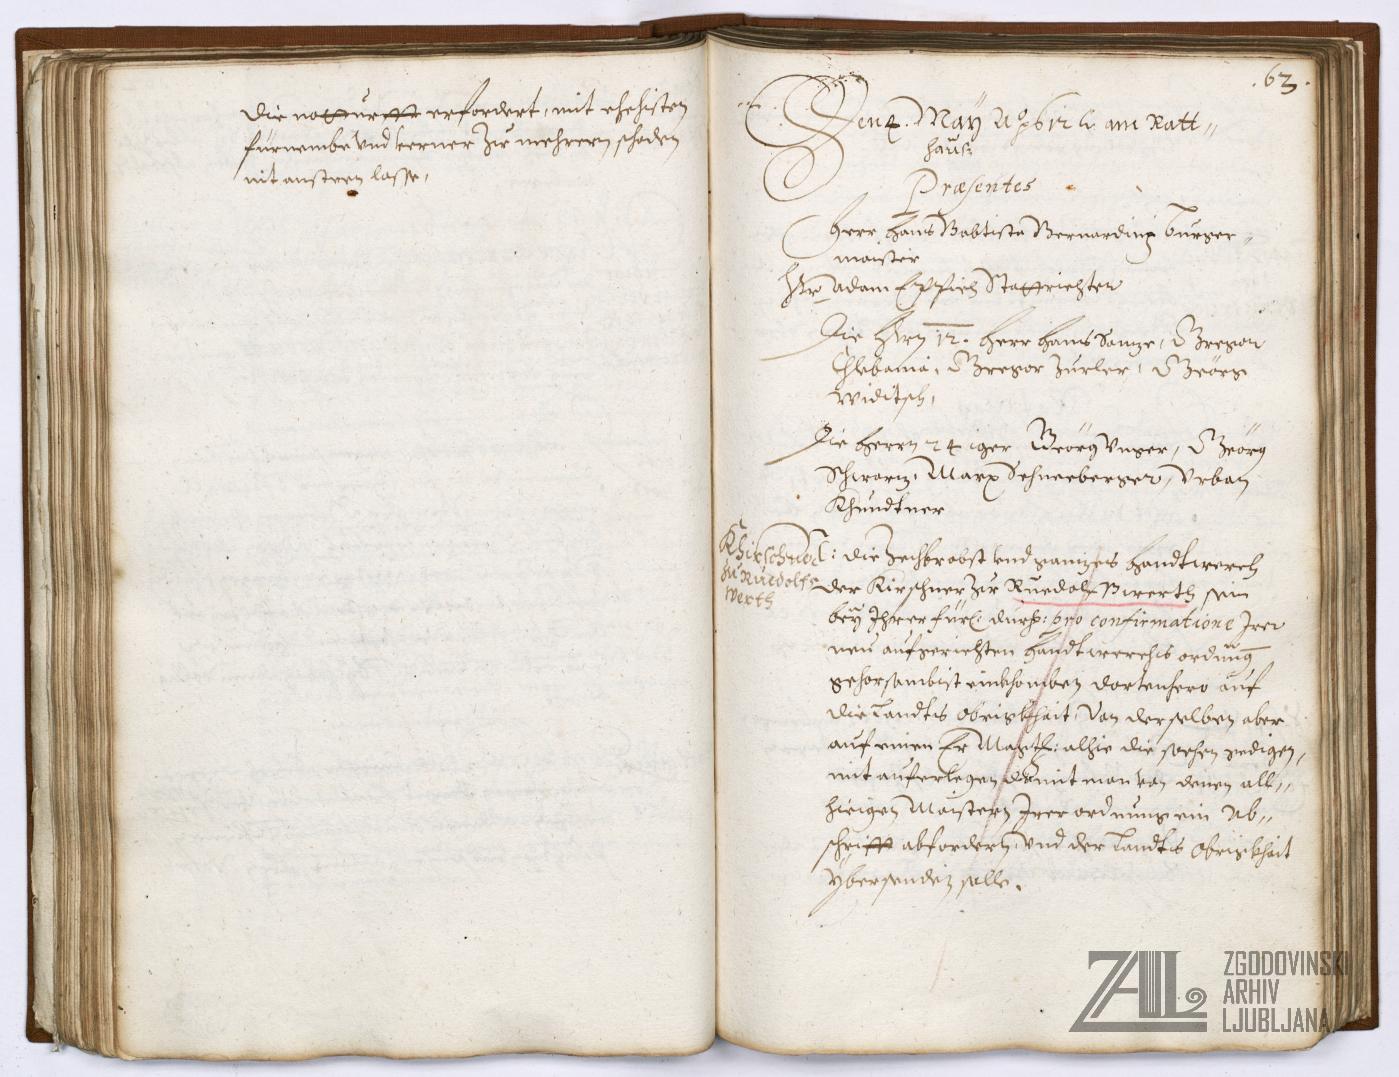 die notturfft erfordert, mit ehehisten
fürnembe vnd ferner zu mehrern schaden
nit ansteen lasse,
.63.
Den 4. May Aº 612 am Ratt
hauß
Præsentes
Herr Hans Babtista Bernardini burger
maister
Hr Adam Eppich Stattrichter
Die Hrn 12. Herr Hans Sonze, Gregor
Chlebaina, Gregor Zurler, Georg
Widitsch,
Die Herrn 24 iger Georg Vnger, Georg
Schwarz, Marx Schneeberger, Vrban
Khundtner
Khirschner
zu Ruedolfs
werth
Die Zechbrobst vnd ganzes Handtwerch
der Kirschner zu Ruedolfswerth sein
bey Ihrer fürl: durch: pro confirmatione Irer
neu aufgerichten Handtwerchs ordnung
gehorsambist einkhomben dortenhero auf
die Landts Obrigkhait, Von derselben aber
auf einen Er: Magst: alhie die sachen gedigen,
mit auferlegen damit man von denen all
hieigen Maistern Irer ordnung ein Ab
schrifft abfordern, vnd der Landts Obrigkhait
ybersenden solle.
ZAL
ZGODOVINSKI
ARHIV
LJUBLJANA